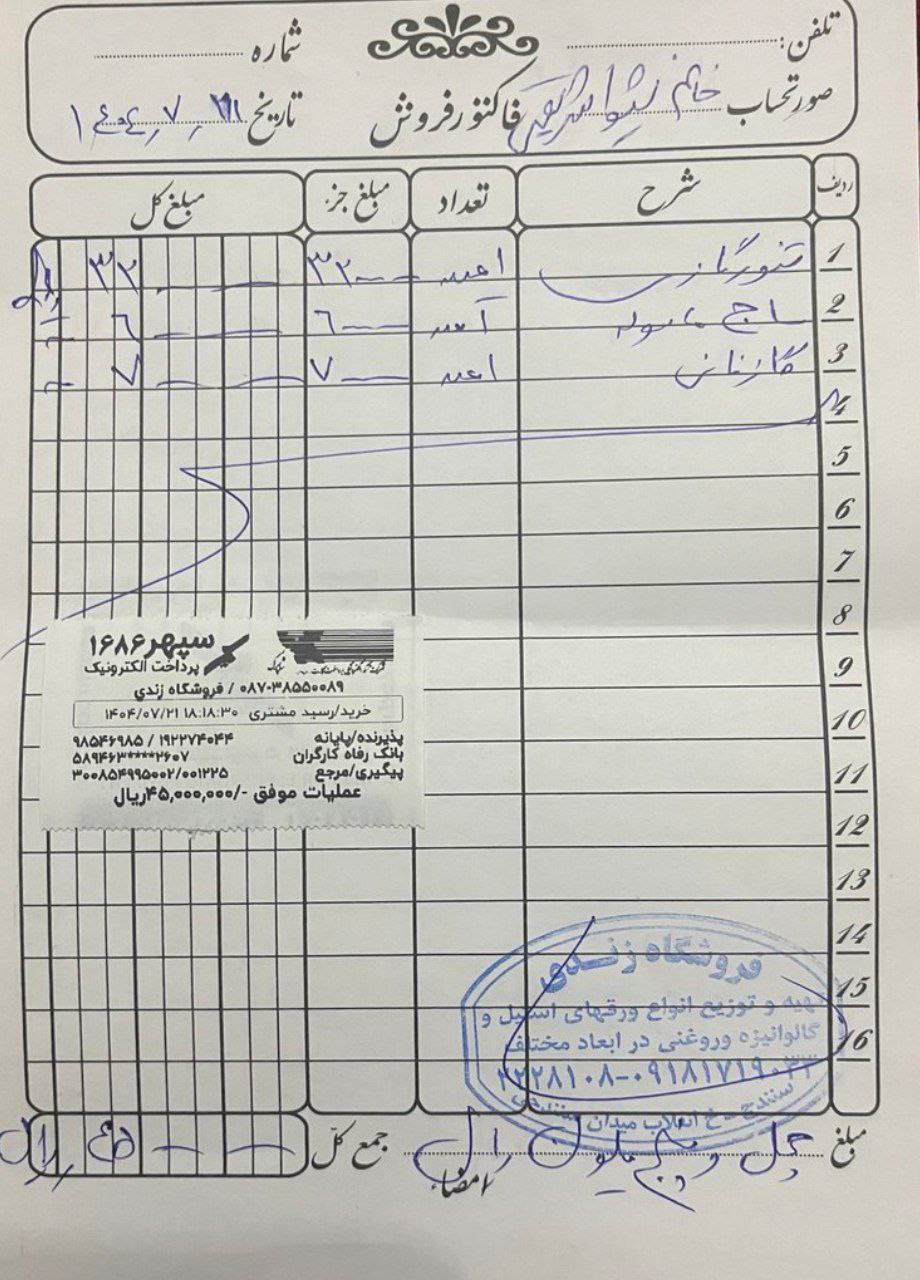 تلفن: شماره
صورتحساب خانم فاکتور فروش تاریخ ۱۴۰۴٫۷٫۲۱
ردیف شرح تعداد مبلغ جزء مبلغ کل
1 تنور گازی ۱ عدد ۳۲ ۳۲ ریال
2 ساج ۱ عدد ۶ ۶
3 گاز ۱ عدد ۷ ۷
4
5
6
7
8
9
10
11
12
13
14
15
16
سپهر ۱۶۸۶
پرداخت الکترونیک
۰۸۷-۳۸۵۵۰۰۸۹ / فروشگاه زندی
خرید/رسید مشتری ۱۸:۱۸:۳۰ ۱۴۰۴/۰۷/۲۱
پذیرنده/پایانه ۱۹۲۲۷۴۰۴۴ / ۹۸۵۴۶۹۸۵
بانک رفاه کارگران ۵۸۹۴۶۳****۲۶۰۷
پیگیری/مرجع ۳۰۰۸۵۴۹۹۵۰۰۲/۰۰۱۲۲۵
عملیات موفق -/۴۵,۰۰۰,۰۰۰ریال
فروشگاه زندی
تهیه و توزیع انواع ورقهای استیل و
گالوانیزه وروغنی در ابعاد مختلف
۲۲۲۸۱۰۸-۰۹۱۸۱۷۱۹۰۳۳
سنندج - خ انقلاب میدان
مبلغ چهل و پنج میلیون ریال جمع کل ۴۵ ریال
امضاء